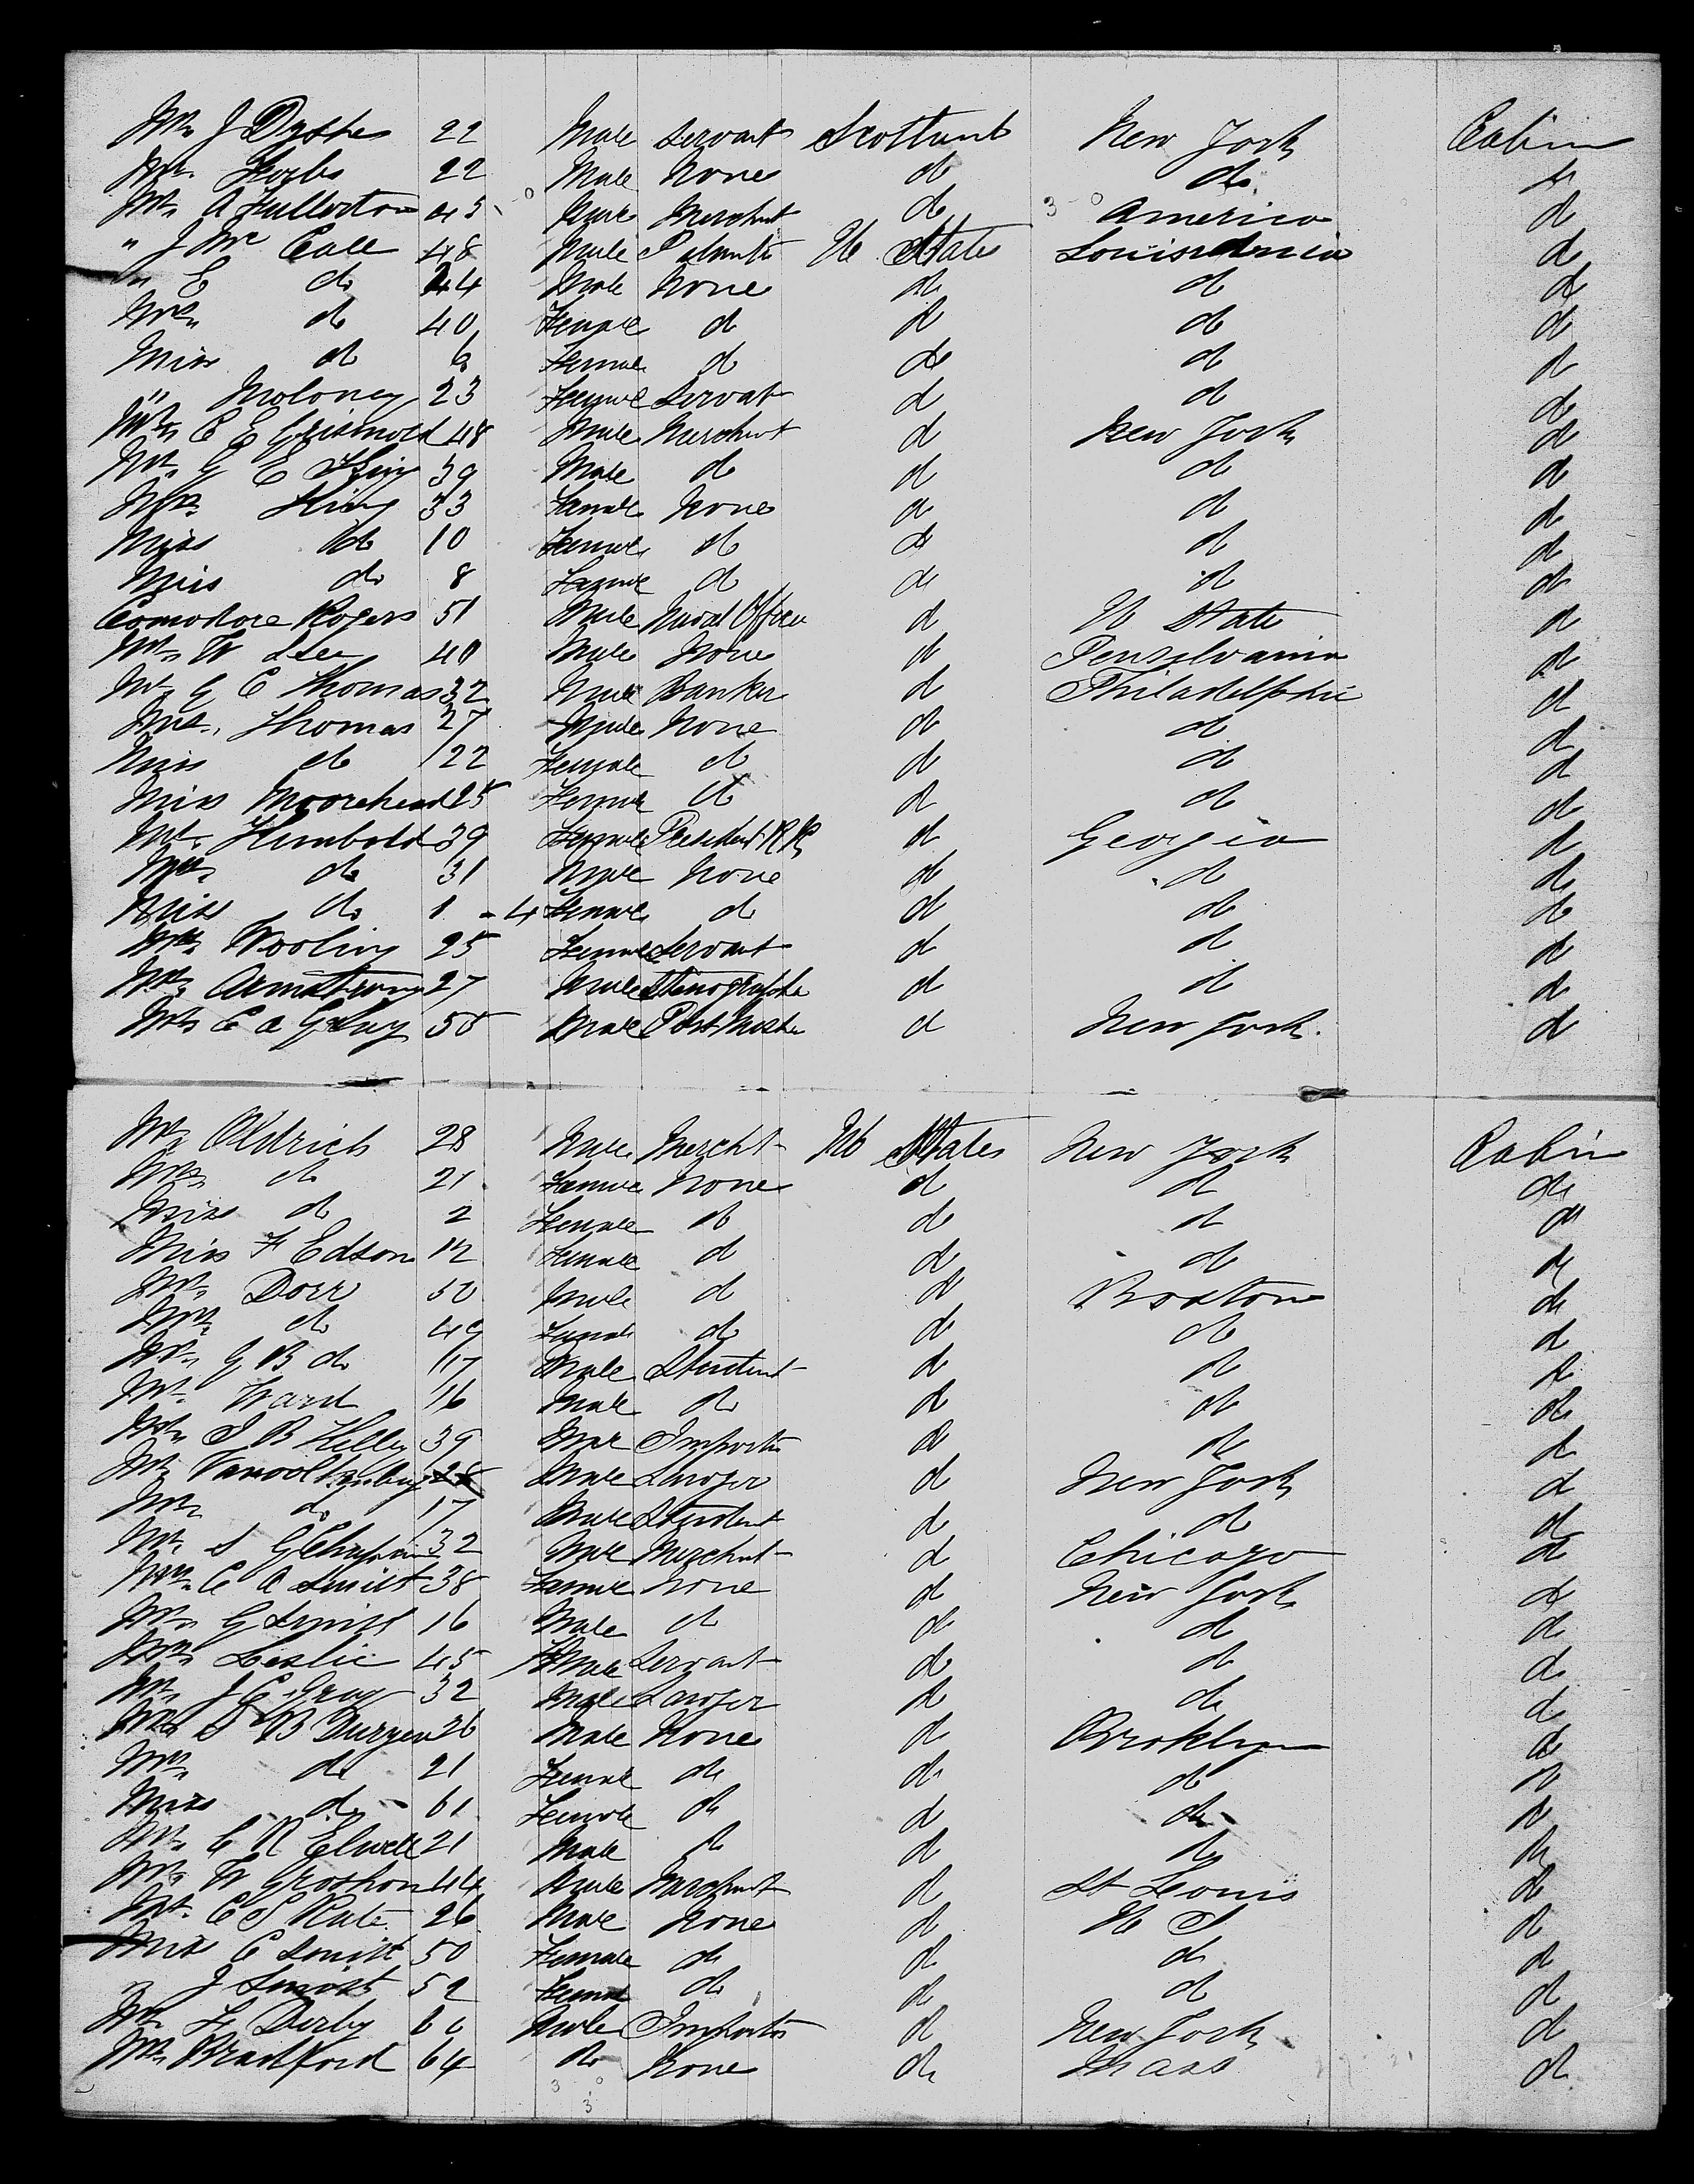 Mr J 22 Male Servant Scotland New York Cabin
Mr Forbs 22 Male None do do do
Mr A Fullerton 45 Male Merchnt do America do
" J Mc Call 48 Male U States do
" E do 44 Male None do do do
Mrs do 40 Female do do do do
Miss do 6 Female do do do do
" Moloney 23 Female Servat do do do
Mr C E Grismold 48 Male Merchnt do New York do
Mr G E King 39 Male do do do do
Mrs King 33 Female None do do do
Miss do 10 Female do do do do
Miss do 8 Female do do do do
Comodore Rogers 51 Male Naval Officer do U State do
Mr W Lee 40 Male None do Pensylvania do
Mr G C Thomas 32 Male Banker do Philadelphia do
Mrs Thomas 27 Male None do do do
Miss do 22 Female do do do do
Miss Moorehead 25 Female do do do do
Mr Humbold 39 Female President R R do Georgia do
Mrs do 31 Male None do do do
Miss do 1 - 4 Female do do do do
Wooling 25 Female Servant do do do
Mr Armstrong 27 Male Stenographe do do do
Mr C a 55 Male Post Maste do New York do
Mr Aldrich 28 Male Mercht U States New York Cabin
Mrs do 21 Female None do do do
Miss do 2 Female do do do do
Miss F Edson 12 Female do do do do
Mr Dorr 50 Male do do Boston do
Mrs do 49 Female do do do do
Mr G B do 17 Male Student do do do
Mr Ward 16 Male do do do do
Mr S B Kelley 39 Male Importer do do do
Mr 28 Male Lawyer do New York do
Mr do 17 Male Student do do do
Mr S G Chapin 32 Male Merchnt do Chicago do
Mrs C A Smith 38 Female None do New York do
Mr G Smith 16 Male do do do do
Mrs Leslie 45 Female Servant do do do
Mr J C Gray 32 Male Lawyer do do do
Mr S B Duryea 26 Male None do Broklyn do
Mrs do 21 Female do do do do
Miss do 61 Female do do do do
Mr C R Elwell 21 Male do do do do
Mr W Groshon 44 Male Merchnt do St Louis do
Mr C S Rate 26 Male None do U S do
Miss C Smith 50 Female do do do do
" J Smith 52 Female do do do do
Mr H Derby 60 Male Importer do New York do
Mr Bradford 64 do None do Mass do